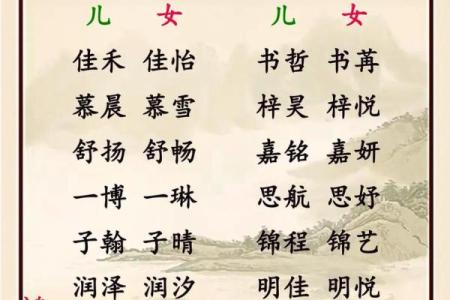 儿 女 儿 女
佳禾 佳怡 书哲 书苒
慕晨 慕雪 梓昊 梓悦
舒扬 舒畅 嘉铭 嘉妍
一博 一琳 思航 思妤
子翰 子晴 锦程 锦艺
润泽 润汐 明佳 明悦